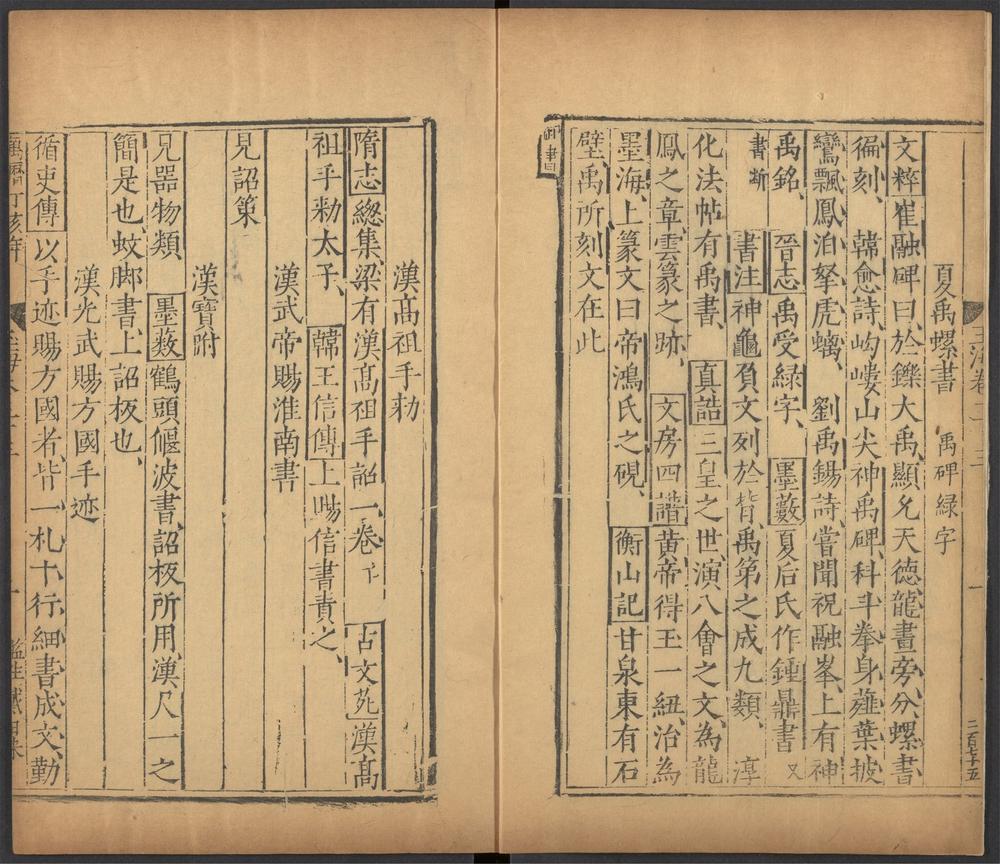 玉海卷三十三
一
二百七十五
夏禹螺書　禹碑綠字
文粹崔融碑曰於鑠大禹顯允天德龍畫旁分螺書
徧刻　韓愈詩岣嶁山尖神禹碑科斗拳身薤葉披
鸞飄鳳泊拏虎螭　劉禹錫詩嘗聞祝融峯上有神
禹銘　晉志禹受綠字　墨藪夏后氏作鍾鼎書又
書斷　書注神龜負文列於背禹第之成九類　淳
化法帖有禹書　真誥三皇之世演八會之文為龍
鳳之章雲篆之跡　文房四譜黃帝得玉一紐治為
墨海上篆文曰帝鴻氏之硯　衡山記甘泉東有石
壁禹所刻文在此
御書
漢高祖手勑
隋志總集梁有漢高祖手詔一卷亡　古文苑漢高
祖手勑太子　韓王信傳上賜信書責之
漢武帝賜淮南書
見詔策
漢寶附
見器物類　墨藪鶴頭偃波書詔板所用漢尺一之
簡是也蚊脚書上詔板也
漢光武賜方國手迹
循吏傳以手迹賜方國者皆一札十行細書成文勤
萬曆丁亥年
一